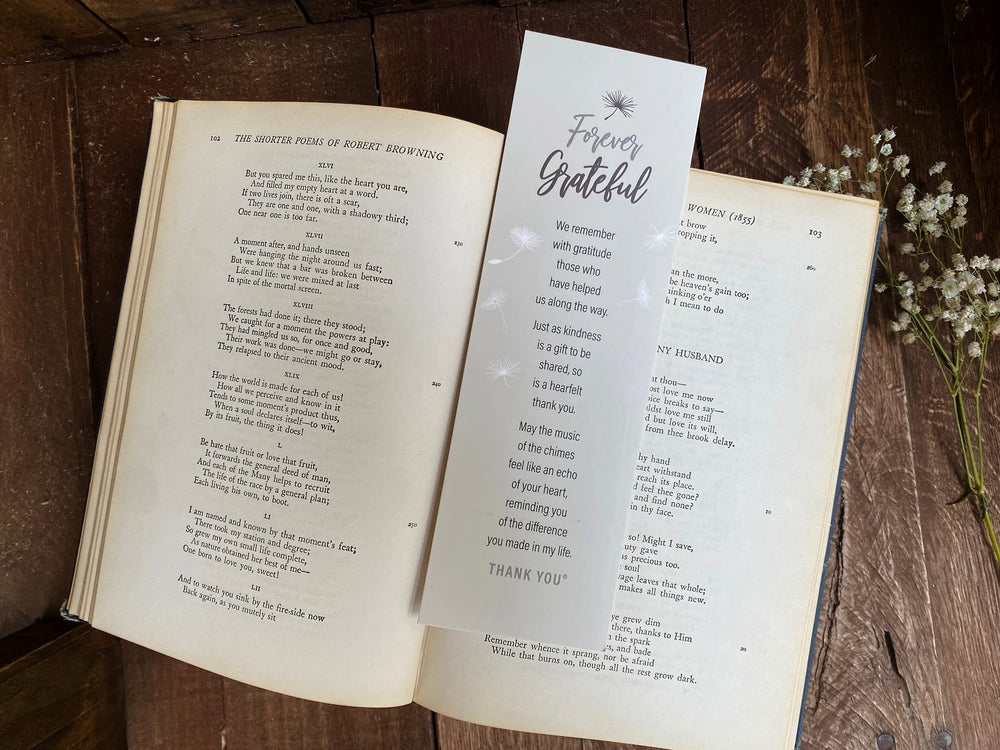 102
THE SHORTER POEMS OF ROBERT BROWNING
XLVI
But you spared me this, like the heart you are,
And filled my empty heart at a word.
If two lives join, there is oft a scar,
They are one and one, with a shadowy third;
One near one is too far.
XLVII
A moment after, and hands unseen 230
Were hanging the night around us fast;
But we knew that a bar was broken between
Life and life: we were mixed at last
In spite of the mortal screen.
XLVIII
The forests had done it; there they stood;
We caught for a moment the powers at play:
They had mingled us so, for once and good,
Their work was done—we might go or stay,
They relapsed to their ancient mood.
XLIX
How the world is made for each of us! 240
How all we perceive and know in it
Tends to some moment's product thus,
When a soul declares itself—to wit,
By its fruit, the thing it does!
L
Be hate that fruit or love that fruit,
It forwards the general deed of man,
And each of the Many helps to recruit
The life of the race by a general plan;
Each living his own, to boot.
LI
I am named and known by that moment's feat; 250
There took my station and degree;
So grew my own small life complete,
As nature obtained her best of me—
One born to love you, sweet!
LII
And to watch you sink by the fire-side now
Back again, as you mutely sit
Forever
Grateful
We remember
with gratitude
those who
have helped
us along the way.
Just as kindness
is a gift to be
shared, so
is a hearfelt
thank you.
May the music
of the chimes
feel like an echo
of your heart,
reminding you
of the difference
you made in my life.
THANK YOU®
WOMEN (1855)
103
t brow
ropping it,
260
an the more,
be heaven's gain too;
hinking o'er
h I mean to do
NY HUSBAND
t thou—
ost love me now
oice breaks to say—
uldst love me still
d but love its will,
from thee brook delay.
hy hand
eart withstand
reach its place.
d feel thee gone?
and find none?
in thy face. 10
so! Might I save,
uty gave
as precious too.
soul
vage leaves that whole;
makes all things new.
ye grew dim
there, thanks to Him
n the spark
es, and bade 20
Remember whence it sprang, nor be afraid
While that burns on, though all the rest grow dark.